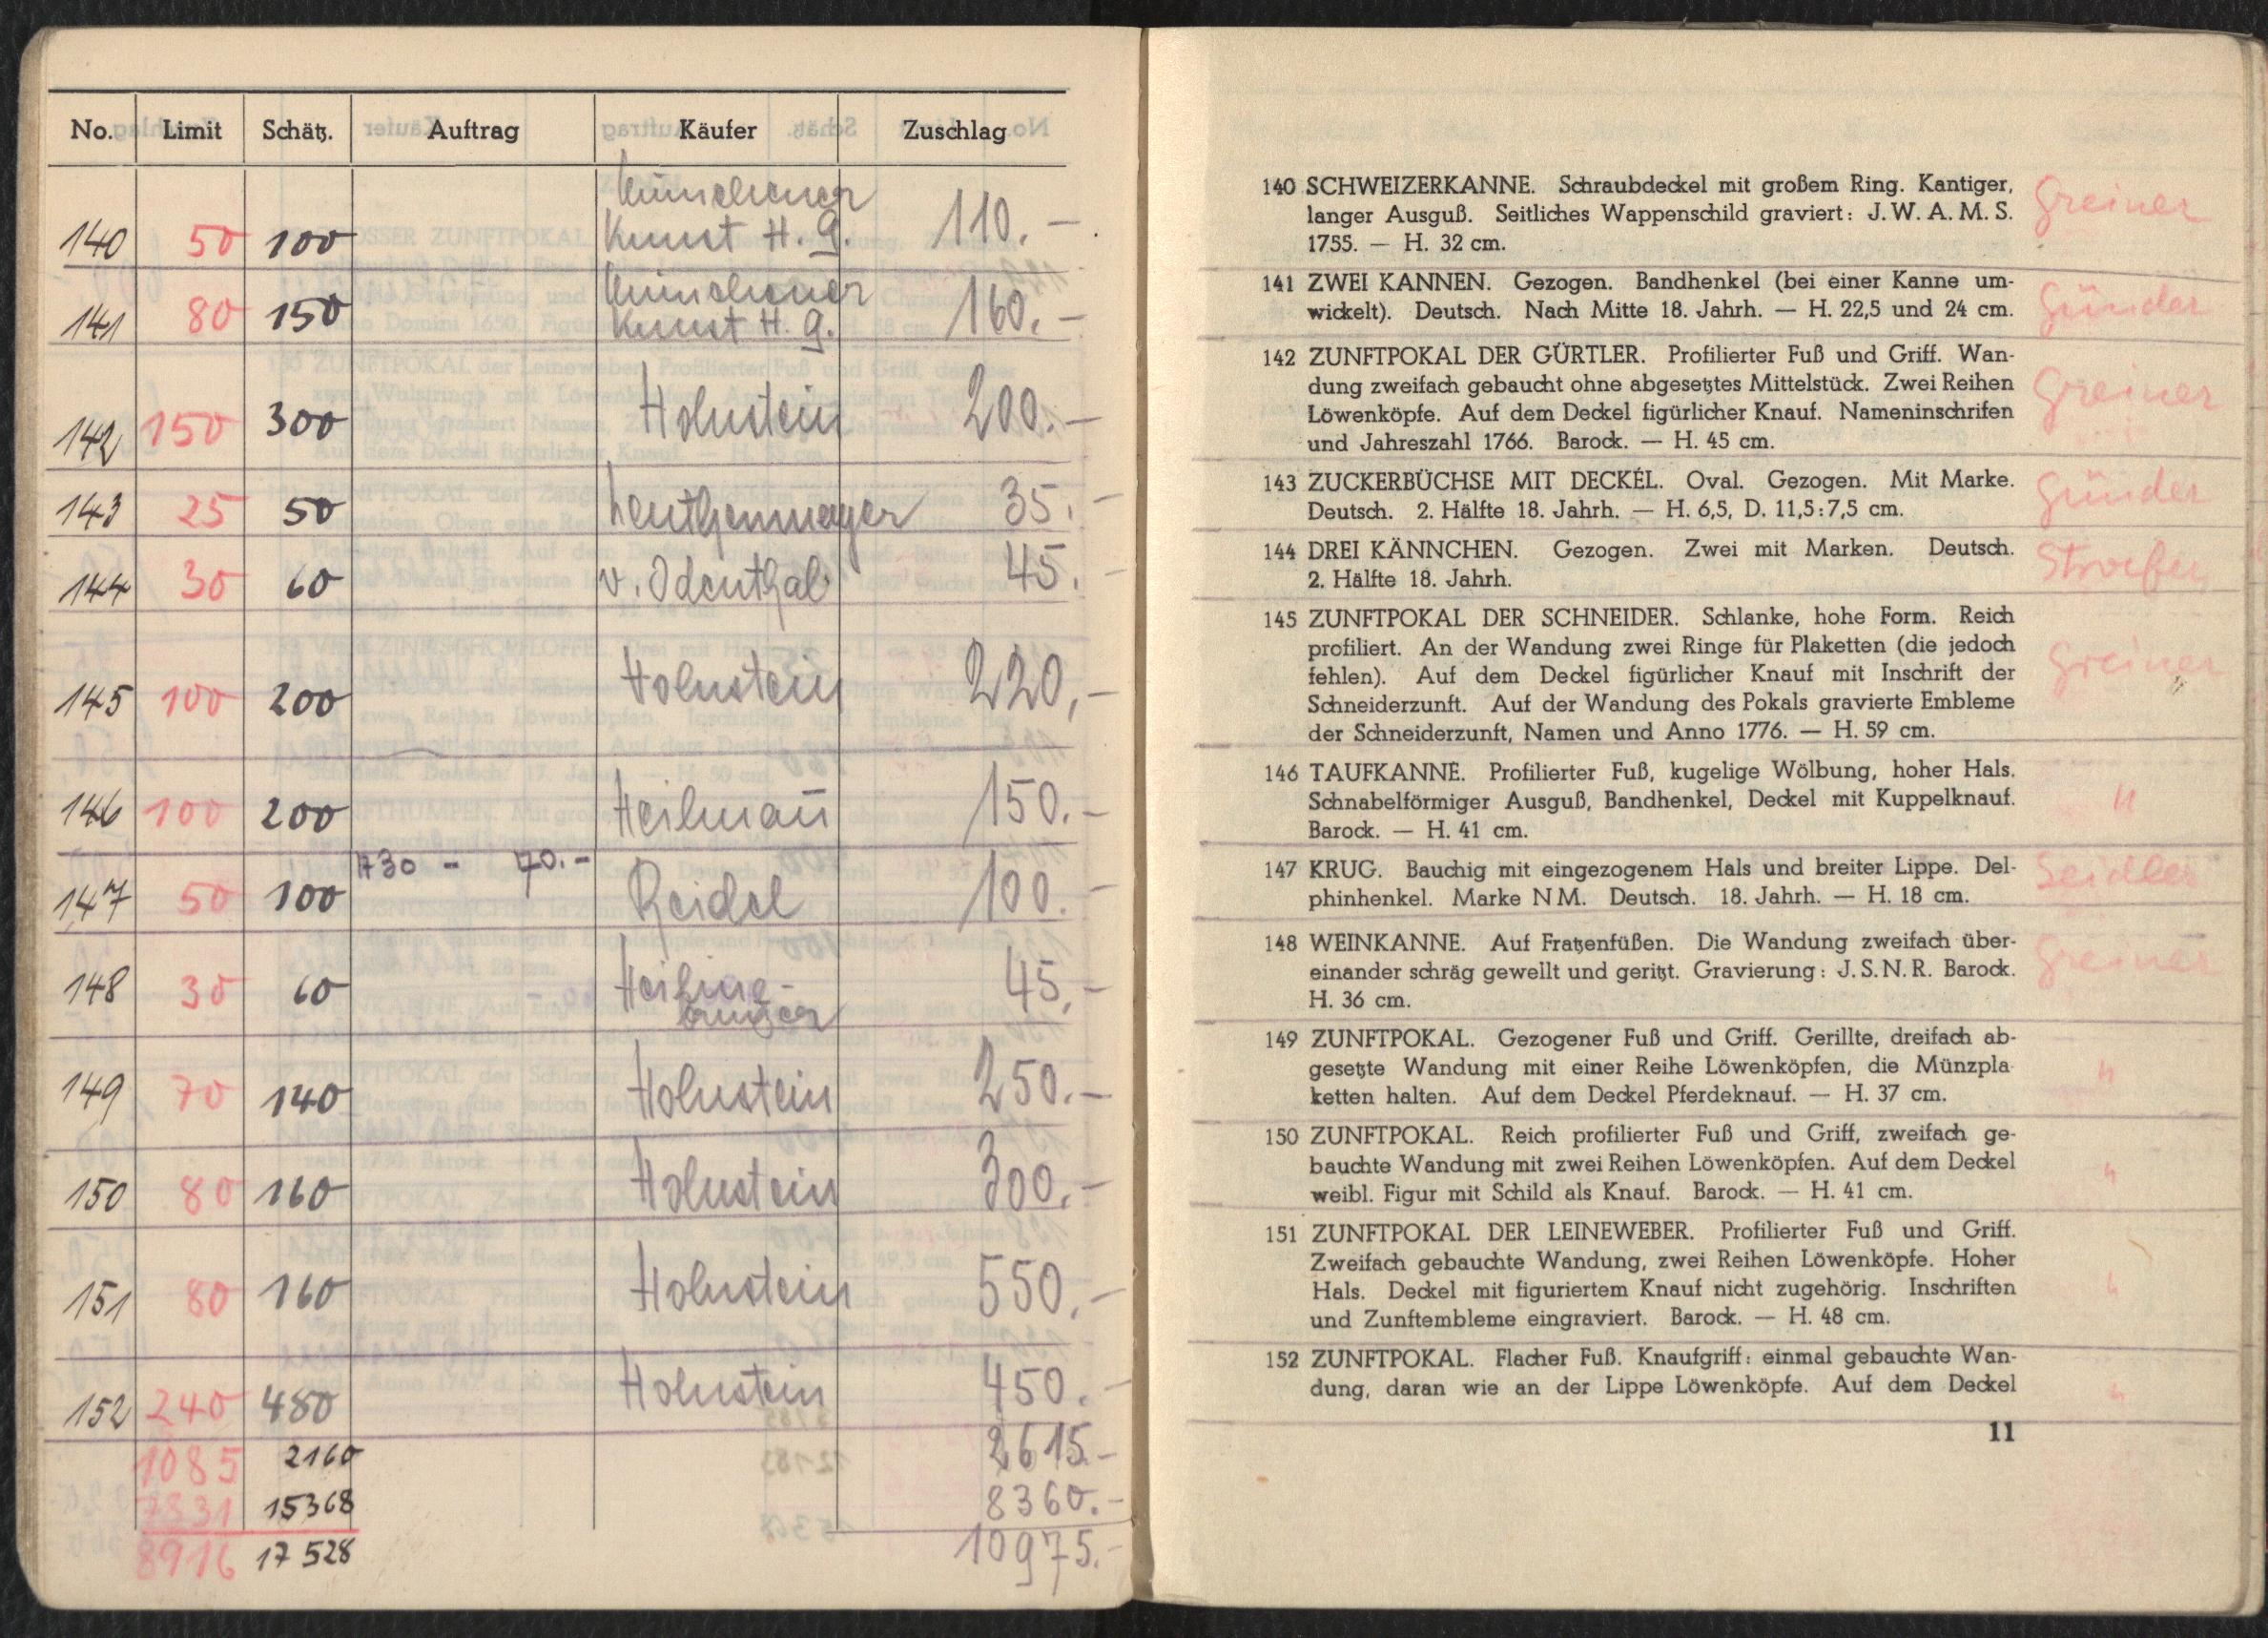 No. Limit Schätz. Auftrag Käufer Zuschlag
Münchener
140 50 100 Kunst H. G. 110.-
Münchener
141 80 150 Kunst H. G. 160.-
142 150 300 Holnstein 200.-
143 25 50 35.-
144 30 60 v. Odenthal 45.-
145 100 200 Holnstein 220,-
146 100 200 Heilmañ 150.-
730 - 70.-
147 50 100 Reidel 100.-
148 30 60 45,-
149 70 140 Holnstein 250.-
150 80 160 Holnstein 300.-
151 80 160 Holnstein 550,-
152 240 480 Holnstein 450.-
1085 2160 2615.-
7831 15368 8360.-
8916 17 528 10975.-
140 SCHWEIZERKANNE. Schraubdeckel mit großem Ring. Kantiger, Greiner
langer Ausguß. Seitliches Wappenschild graviert: J. W. A. M. S.
1755. — H. 32 cm.
141 ZWEI KANNEN. Gezogen. Bandhenkel (bei einer Kanne um- Günder
wickelt). Deutsch. Nach Mitte 18. Jahrh. — H. 22,5 und 24 cm.
142 ZUNFTPOKAL DER GÜRTLER. Profilierter Fuß und Griff. Wan-
dung zweifach gebaucht ohne abgesetztes Mittelstück. Zwei Reihen Greiner
Löwenköpfe. Auf dem Deckel figürlicher Knauf. Nameninschrifen
und Jahreszahl 1766. Barock. — H. 45 cm.
143 ZUCKERBÜCHSE MIT DECKEL. Oval. Gezogen. Mit Marke. Günder
Deutsch. 2. Hälfte 18. Jahrh. — H. 6,5, D. 11,5:7,5 cm.
144 DREI KÄNNCHEN. Gezogen. Zwei mit Marken. Deutsch.
2. Hälfte 18. Jahrh.
145 ZUNFTPOKAL DER SCHNEIDER. Schlanke, hohe Form. Reich
profiliert. An der Wandung zwei Ringe für Plaketten (die jedoch Greiner
fehlen). Auf dem Deckel figürlicher Knauf mit Inschrift der
Schneiderzunft. Auf der Wandung des Pokals gravierte Embleme
der Schneiderzunft, Namen und Anno 1776. — H. 59 cm.
146 TAUFKANNE. Profilierter Fuß, kugelige Wölbung, hoher Hals.
Schnabelförmiger Ausguß, Bandhenkel, Deckel mit Kuppelknauf. "
Barock. — H. 41 cm.
147 KRUG. Bauchig mit eingezogenem Hals und breiter Lippe. Del- Seidler
phinhenkel. Marke N M. Deutsch. 18. Jahrh. — H. 18 cm.
148 WEINKANNE. Auf Fratzenfüßen. Die Wandung zweifach über- Greiner
einander schräg gewellt und geritzt. Gravierung: J. S. N. R. Barock.
H. 36 cm.
149 ZUNFTPOKAL. Gezogener Fuß und Griff. Gerillte, dreifach ab-
gesetzte Wandung mit einer Reihe Löwenköpfen, die Münzpla- "
ketten halten. Auf dem Deckel Pferdeknauf. — H. 37 cm.
150 ZUNFTPOKAL. Reich profilierter Fuß und Griff, zweifach ge-
bauchte Wandung mit zwei Reihen Löwenköpfen. Auf dem Deckel "
weibl. Figur mit Schild als Knauf. Barock. — H. 41 cm.
151 ZUNFTPOKAL DER LEINEWEBER. Profilierter Fuß und Griff.
Zweifach gebauchte Wandung, zwei Reihen Löwenköpfe. Hoher
Hals. Deckel mit figuriertem Knauf nicht zugehörig. Inschriften "
und Zunftembleme eingraviert. Barock. — H. 48 cm.
152 ZUNFTPOKAL. Flacher Fuß. Knaufgriff: einmal gebauchte Wan-
dung, daran wie an der Lippe Löwenköpfe. Auf dem Deckel "
11